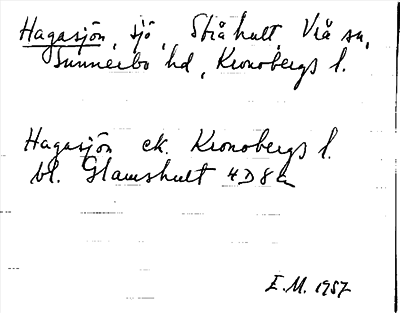 Hagasjön, sjö, Stiåhult, Vrå sn,
Sunnerbo hd, Kronobergs l.
Hagasjön ek. Kronobergs l.
bl. Glamshult 4D8a
E.M. 1957